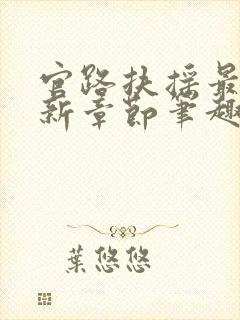 官路扶摇最
新章節筆趣
葉悠悠